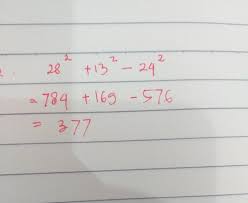 28² + 13² - 24²
= 784 + 169 - 576
= 377